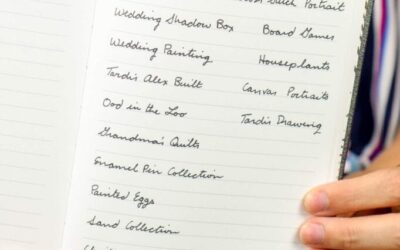 Wedding Shadow Box
Wedding Painting
Tardis Alex Built
Ood in the Loo
Grandma's Quilts
Enamel Pin Collection
Painted Eggs
Sand Collection
Portrait
Board Games
Houseplants
Canvas Portraits
Tardis Drawing